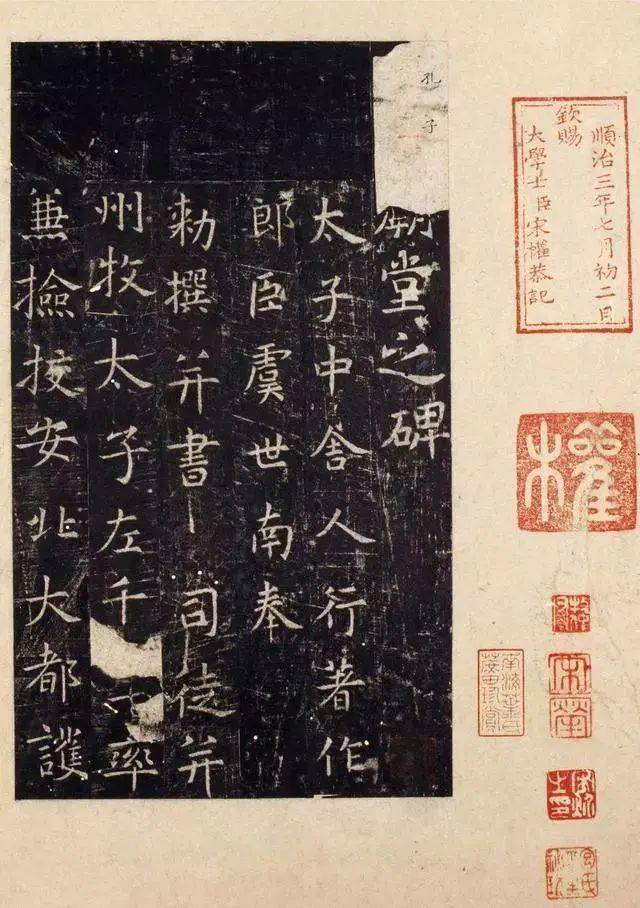 順治三年七月初二日
欽賜
大學士臣宋權恭記
權
孔子
廟堂之碑
太子中舍人行著作
郎臣虞世南奉
勑撰并書 司徒并
州牧太子左千牛率
兼撿挍安北大都護